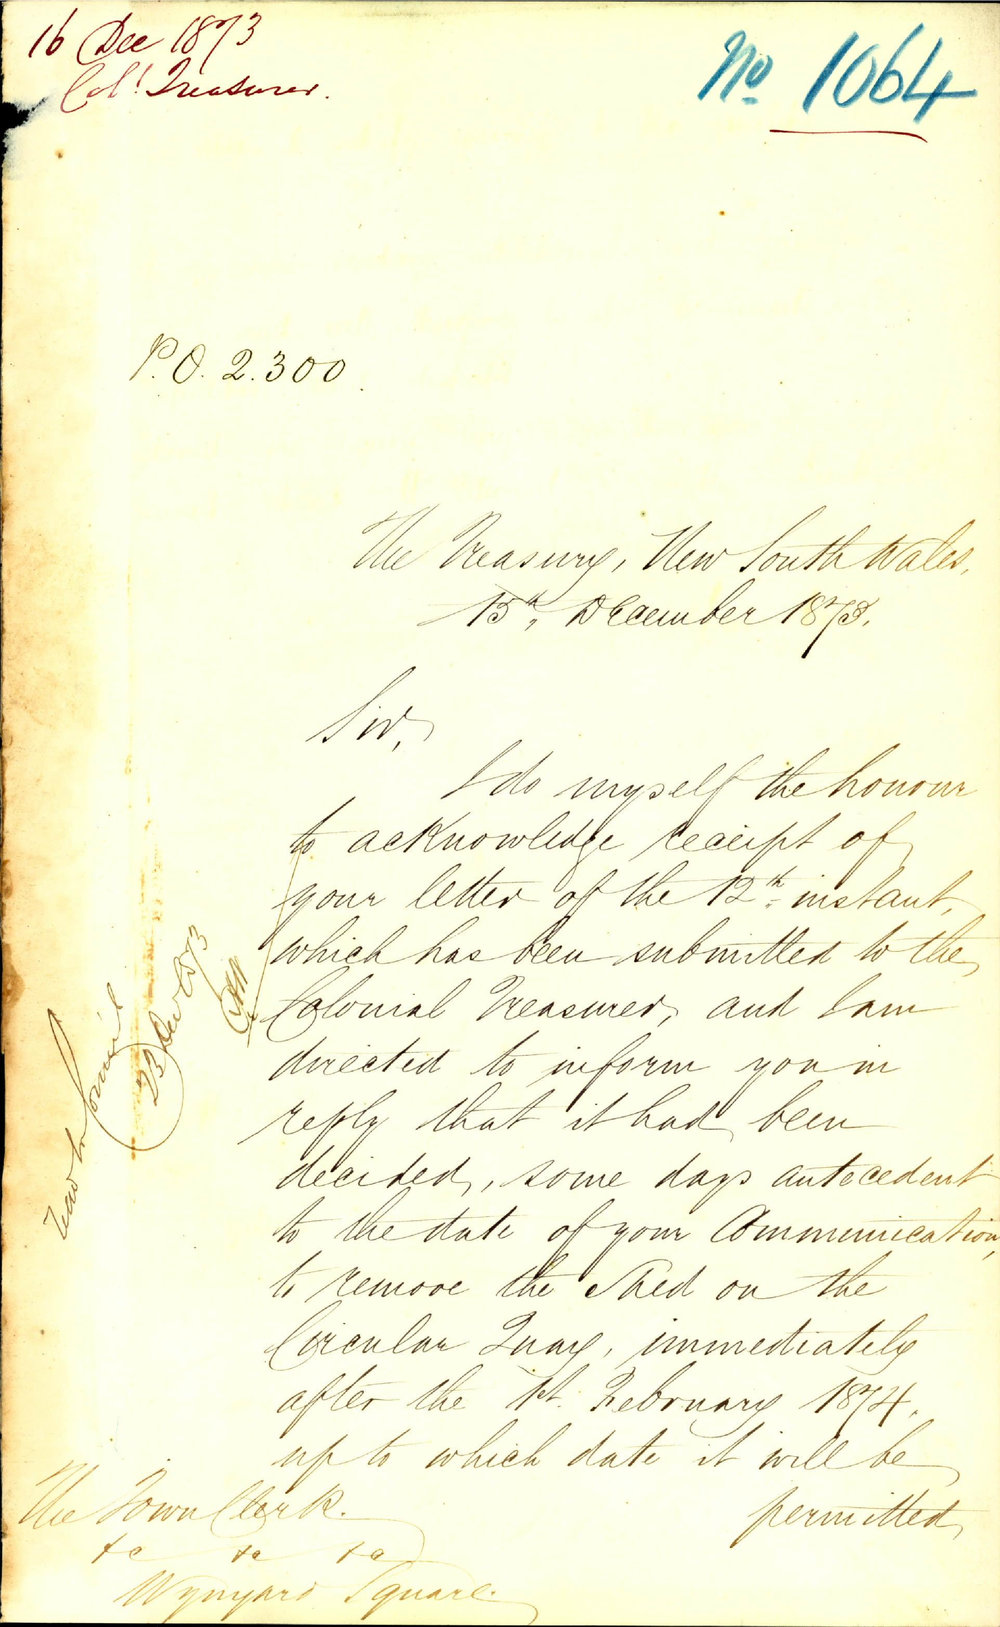 16 Dec 1873
Col! Treasurer.
No 1064
P.O. 2.300
The Treasury, New South Wales,
15th, December 1873.
Sir,
I do myself the honour
to acknowledge receipt of
your letter of the 12th instant,
which has been submitted to the
Colonial Treasurer, and I am
directed to inform you in
reply that it had been
decided, some days antecedent
to the date of your Communication,
to remove the Shed on the
Circular Quay, immediately
after the 1st. February 1874,
up to which date it will be
permitted
Read in Council
23 Dec 1873
The Town Clerk.
&c &c &c
Wynyard Square.